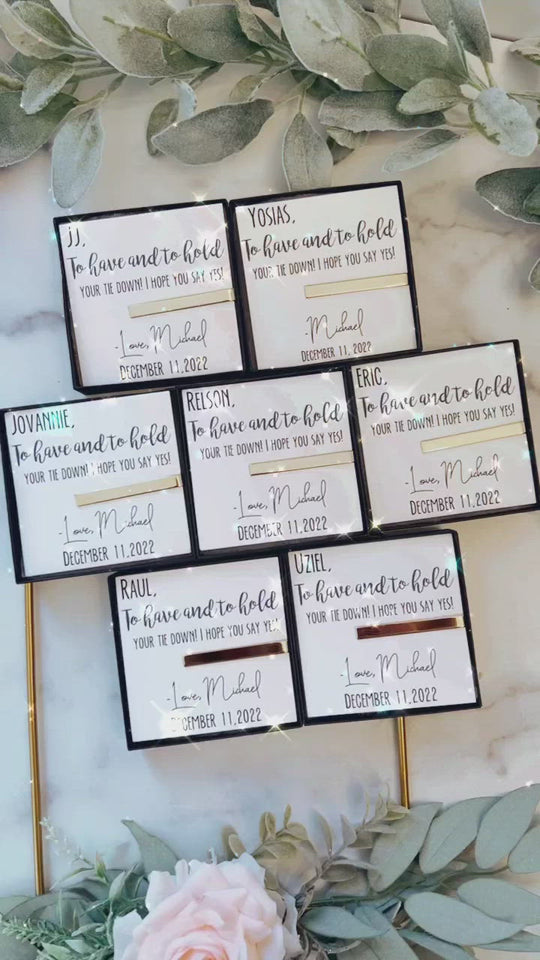 JJ,
To have and to hold
YOUR TIE DOWN! I HOPE YOU SAY YES!
-Love, Michael
DECEMBER 11,2022
YOSIAS,
To have and to hold
YOUR TIE DOWN! I HOPE YOU SAY YES!
-Michael
DECEMBER 11,2022
JOVANNIE,
To have and to hold
YOUR TIE DOWN! I HOPE YOU SAY YES!
-Love, Michael
DECEMBER 11,2022
RELSON,
To have and to hold
YOUR TIE DOWN! I HOPE YOU SAY YES!
-Love, Michael
DECEMBER 11,2022
ERIC,
To have and to hold
YOUR TIE DOWN! I HOPE YOU SAY YES!
-Love, Michael
DECEMBER 11,2022
RAUL,
To have and to hold
YOUR TIE DOWN! I HOPE YOU SAY YES!
-Love, Michael
DECEMBER 11,2022
UZIEL,
To have and to hold
YOUR TIE DOWN! I HOPE YOU SAY YES!
-Love, Michael
DECEMBER 11,2022